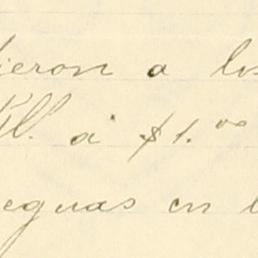 ieron a los
Kl. a $1.00
eguas en l